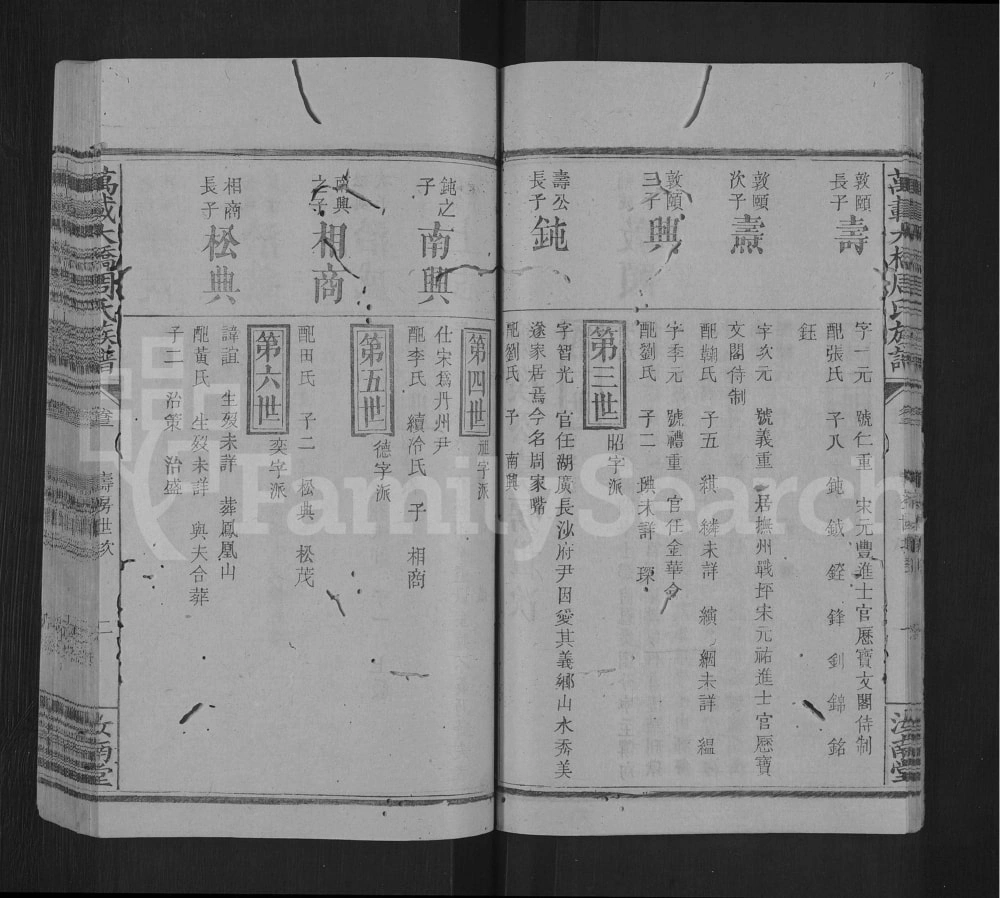 敦頤長子 壽
字一元 號仁重 宋元豐進士官歷寶文閣侍制
配張氏 子八 鈍 鉞 鋒 釗 錦 銘
鈺
敦頤次子 燾
字次元 號義重 居撫州戰坪宋元祐進士官歷寶
文閣侍制
配韓氏 子五 綨 繗未詳 縯 綑未詳 緼
敦頤三子 興
字季元 號禮重 官任金華令
配劉氏 子二 琠未詳 琛
第三世 昭字派
壽公長子 鈍
字智光 官任湖廣長沙府尹因愛其義鄉山水秀美
遂家居焉今名周家嘴
配劉氏 子 南興
第四世
鈍之子 南興
仕宋爲丹州尹
配李氏 續冷氏 子 相商
第五世 德字派
南興之子 相商
配田氏 子二 松典 松茂
第六世 奕字派
相商長子 松典
諱誼 生歿未詳 葬鳳凰山
配黃氏 生歿未詳 與夫合葬
子二 治策 治盛
萬載大橋周氏族譜 卷首 壽房世次 二 汝南堂
FamilySearch